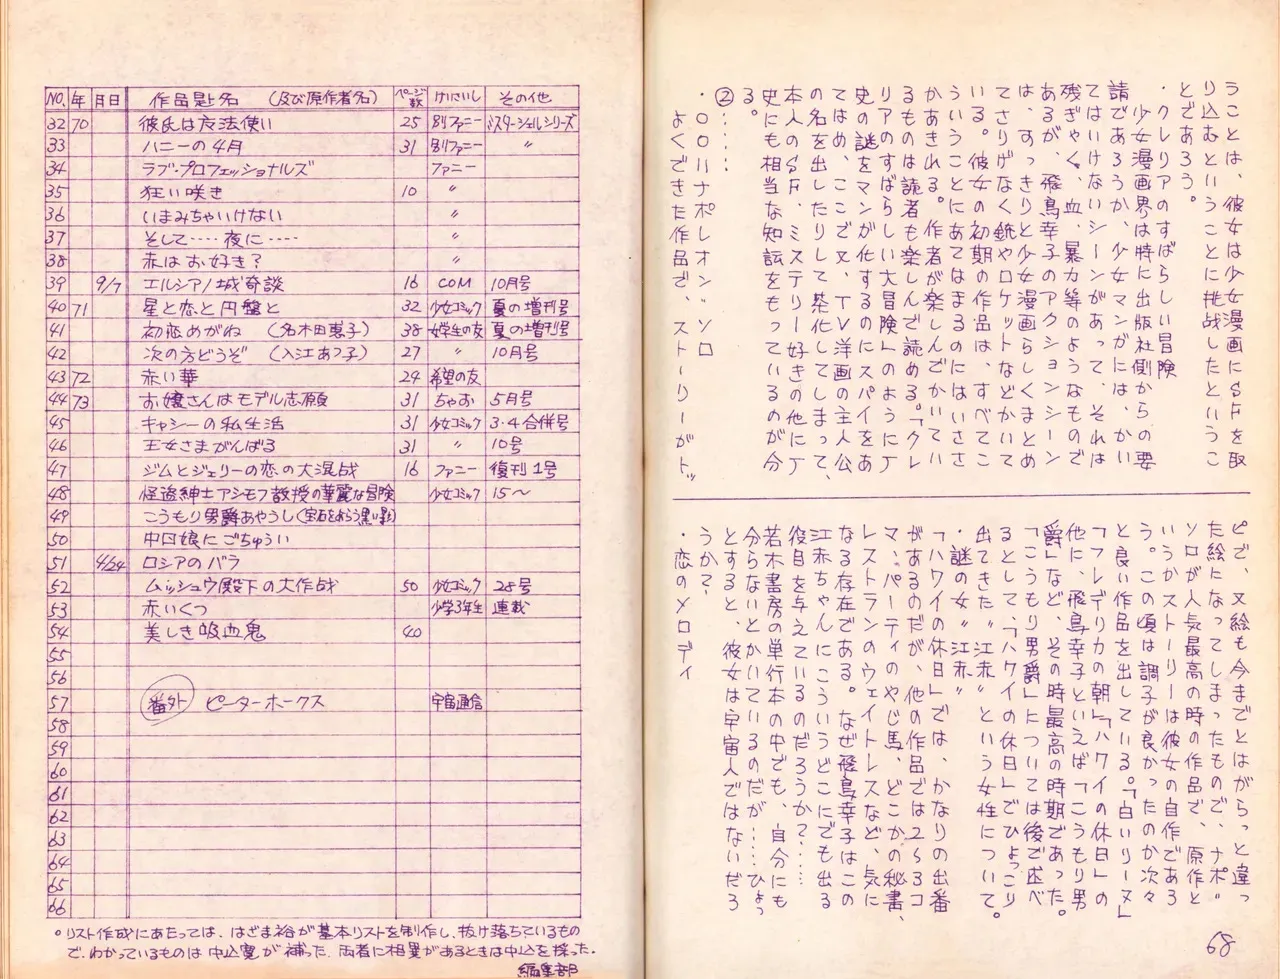 NO. 年 月日 作品題名 (及び原作者名) ページ数 けいさいし その他
32 70 彼氏は友法使い 25 別ファニー ミスターシェルシリーズ
33 ハニーの4月 31 別ファニー 〃
34 ラブ・プロフェッショナルズ ファニー
35 狂い咲き 10 〃
36 いまみちゃいけない 〃
37 そして‥‥夜に‥‥ 〃
38 赤はお好き? 〃
39 9/7 エルシアノ城奇談 16 COM 10月号
40 71 星と恋と円盤と 32 少女コミック 夏の増刊号
41 初恋めがね (名木田恵子) 38 女学生の友 夏の増刊号
42 次の方どうぞ (入江あつ子) 27 〃 10月号
43 72 赤い華 24 希望の友
44 73 お嬢さんはモデル志願 31 ちゃお 5月号
45 キャシーの私生活 31 少女コミック 3・4合併号
46 王女さまがんばる 31 〃 10号
47 ジムとジェリーの恋の大混戦 16 ファニー 復刊1号
48 怪盗紳士アシモフ教授の華麗な冒険 少女コミック 15〜
49 こうもり男爵あやうし(宝石をねらう黒い影)
50 中国娘にごちゅうい
51 4/24 ロシアのバラ
52 ムッシュウ殿下の大作戦 50 少女コミック 28号
53 赤いくつ 少学3年生 連載
54 美しき吸血鬼 40
55
56
57 番外 ピーターホークス 宇宙通信
58
59
60
61
62
63
64
65
66
○リスト作成にあたっては、はざま裕が基本リストを制作し、抜け落ちているもの
で、わかっているものは中込寛が補った。両者に相異があるときは中込を採った。
編集部B
うことは、彼女は少女漫画にSFを取
り込むということに挑戦したというこ
とであろう。
・クレリアのすばらしい冒険
少女漫画界は特に出版社側からの要
請であろうか、少女マンガには、かい
てはいけないシーンがあって、それは
残ぎゃく、血、暴力等のようなもので
あるが、飛鳥幸子のアクションシーン
は、すっきりと少女漫画らしくまとめ
てさりげなく銃やロケットなどかいて
いる。彼女の初期の作品は、すべてこ
ういうことにあてはまるのにはいささ
かあきれる。作者が楽しんでかいてい
るものは読者も楽しんで読める。「クレ
リアのすばらしい大冒険」のようにJ
史の謎をマンガ化するのにスパイをあ
てはめ、ここで又、TV洋画の主人公
の名を出したりして茶化してしまって、
本人のSF、ミステリー好きの他にJ
史にも相当な知識をもっているのが分
る。
②‥‥‥
・〇〇ハナポレオン〃ソロ
よくできた作品で、ストーリーがト〃
ピで、又絵も今までとはがらっと違っ
た絵になってしまったもので、ナポ〃
ソロが人気最高の時の作品で、原作と
いうかストーリーは彼女の自作であろ
う。この頃は調子が良かったのか次々
と良い作品を出している。「白いリーヌ」
「フレデリカの朝」「ハワイの休日」の
他に、飛鳥幸子といえば「こうもり男
爵」など、その時最高の時期であった。
「こうもり男爵」については後で述べ
るとして、「ハワイの休日」でひょっこり
出てきた〝江赤〟という女性について。
・謎の女〝江赤〟
「ハワイの休日」では、かなりの出番
があるのだが、他の作品では2〜3コ
マ、パーティのやじ馬、どこかの秘書、
レストランのウェイトレスなど、気に
なる存在である。なぜ飛鳥幸子はこの
江赤ちゃんにこういうどこにでも出る
役目を与えているのだろうか?‥‥
若木書房の単行本の中でも、自分にも
分らないとかいているのだが‥‥ひょっ
とすると、彼女は宇宙人ではないだろ
うか?
・恋のメロディ
68